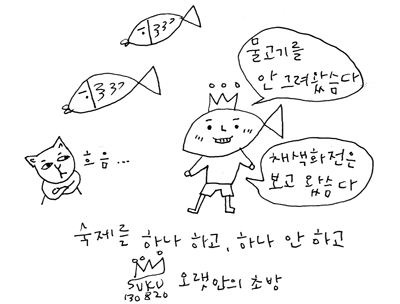 물고기를
안 그려왔씀다
흐음...
채색화전은
보고 왔씀다
숙제를 하나 하고, 하나 안 하고
SUKU
130820
오랫만의 초방